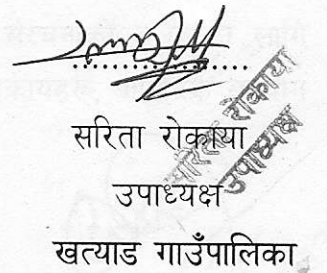 सरिता रोकाया
उपाध्यक्ष
खत्याड गाउँपालिका
सरिता रोकाया
उपाध्यक्ष